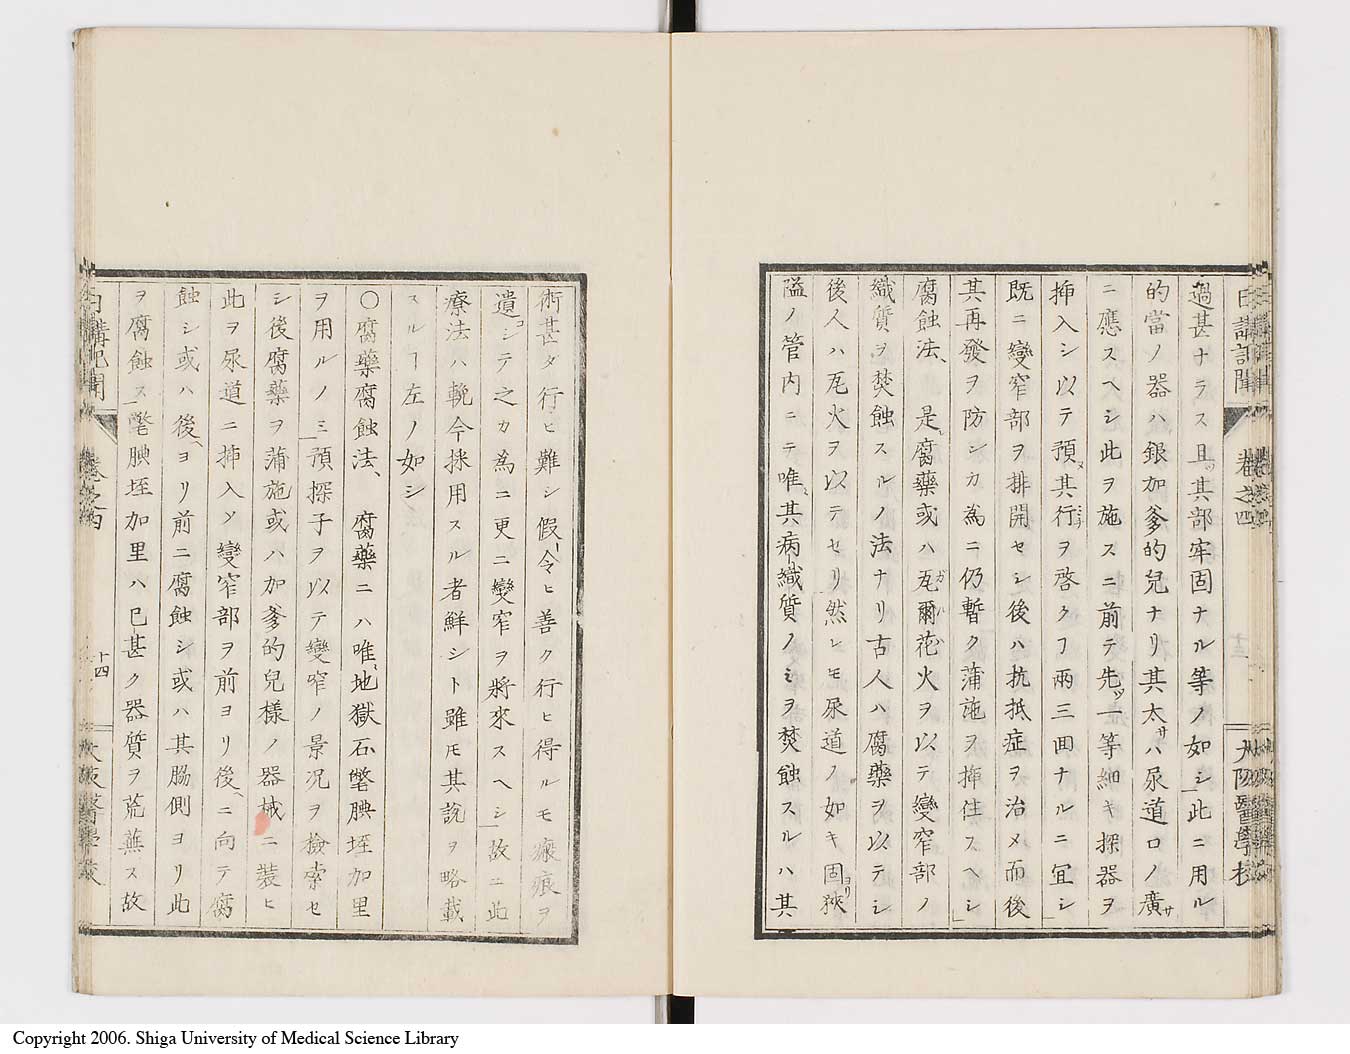 日講記聞 卷之四 十三 大阪醫學校
過甚ナラス且ツ其部牢固ナル等ノ如シ此ニ用ル
的當ノ器ハ銀加爹的兒ナリ其太サハ尿道口ノ廣サ
ニ應スヘシ此ヲ施スニ前テ先ツ一等細キ探器ヲ
挿入シ以テ預メ其行ヲ啓クヿ兩三回ナルニ宜シ
既ニ變窄部ヲ排開セシ後ハ抗抵症ヲ治メ而後
其再發ヲ防シカ為ニ仍暫ク蒲施ヲ挿住スヘシ
腐蝕法、是腐藥或ハ瓦爾花火ヲ以テ變窄部ノ
織質ヲ焚蝕スルノ法ナリ古人ハ腐藥ヲ以テシ
後人ハ瓦火ヲ以テセリ然レモ尿道ノ如キ固ヨリ狹
隘ノ管内ニテ唯其病織質ノミヲ焚蝕スルハ其
術甚タ行ヒ難シ假令ヒ善ク行ヒ得ルモ瘢痕ヲ
遺シテ之カ為ニ更ニ變窄ヲ將來スヘシ故ニ此
療法ハ輓今採用スル者鮮シト雖モ其說ヲ略載
スルヿ左ノ如シ
〇腐藥腐蝕法、腐藥ニハ唯地獄石䰐腆垤加里
ヲ用ルノミ預探子ヲ以テ變窄ノ景況ヲ檢索セ
シ後腐藥ヲ蒲施或ハ加爹的兒樣ノ器械ニ裝ヒ
此ヲ尿道ニ挿入ソ變窄部ヲ前ヨリ後ニ向テ腐
蝕シ或ハ後ヨリ前ニ腐蝕シ或ハ其脇側ヨリ此
ヲ腐蝕ス䰐腆垤加里ハ已甚ク器質ヲ荒蕪ス故
日講記聞 卷之四 十四 大阪醫學校
Copyright 2006. Shiga University of Medical Science Library